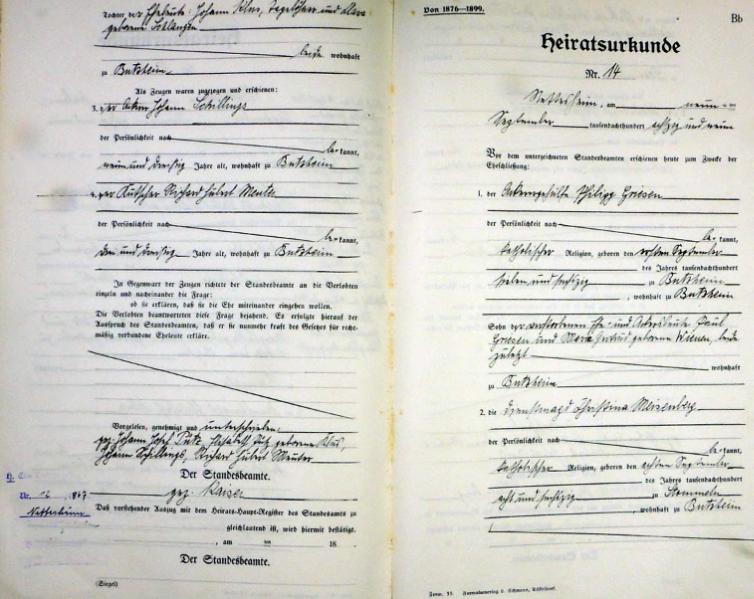 Tochter der Eheleute: Johann Klus, Tagelöhner und
geborene
beide wohnhaft
zu Butzheim
Als Zeugen waren zugezogen und erschienen:
3. der Ackerer Johann Schillings
der Persönlichkeit nach
be kannt,
neun und dreißig Jahre alt, wohnhaft zu Butzheim
4. der Kutscher Richard Hubert Meuter
der Persönlichkeit nach
be kannt,
drei und dreißig Jahre alt, wohnhaft zu Butzheim
In Gegenwart der Zeugen richtete der Standesbeamte an die Verlobten
einzeln und nacheinander die Frage:
ob sie erklären, daß sie die Ehe miteinander eingehen wollen.
Die Verlobten beantworteten diese Frage bejahend. Es erfolgte hierauf der
Ausspruch des Standesbeamten, daß er sie nunmehr kraft des Gesetzes für recht-
mäßig verbundene Eheleute erkläre.
Vorgelesen, genehmigt und unterschrieben:
gez. Johann Josef Pütz, Elisabeth Pütz geborene Klus,
Johann Schillings, Richard Hubert Meuter
Der Standesbeamte.
gez. Kaiser
Nr.
Daß vorstehender Auszug mit dem Heirats-Haupt-Register des Standesamts zu
Nettesheim
gleichlautend ist, wird hiermit bestätigt.
, am 18
Der Standesbeamte.
(Siegel)
Von 1876—1899.
Bb
Heiratsurkunde
Nr. 14
Nettesheim, am neun
September tausendachthundert achtzig und neun
Vor dem unterzeichneten Standesbeamten erschienen heute zum Zwecke der
Eheschließung:
1. der Ackergehülfe Philipp Griesen
der Persönlichkeit nach
be kannt,
katholischer Religion, geboren den ersten September
des Jahrs tausendachthundert
sieben und sechszig zu Butzheim
, wohnhaft zu Butzheim
Sohn der verstorbenen Ehe- und Ackersleute Paul
Griesen und Maria geborene Wienen, beide
zuletzt
wohnhaft
zu Butzheim
2. die Dienstmagd Christina
der Persönlichkeit nach
be kannt,
katholischer Religion, geboren den achten September
des Jahrs tausendachthundert
acht und sechszig zu Stommeln
, wohnhaft zu Butzheim